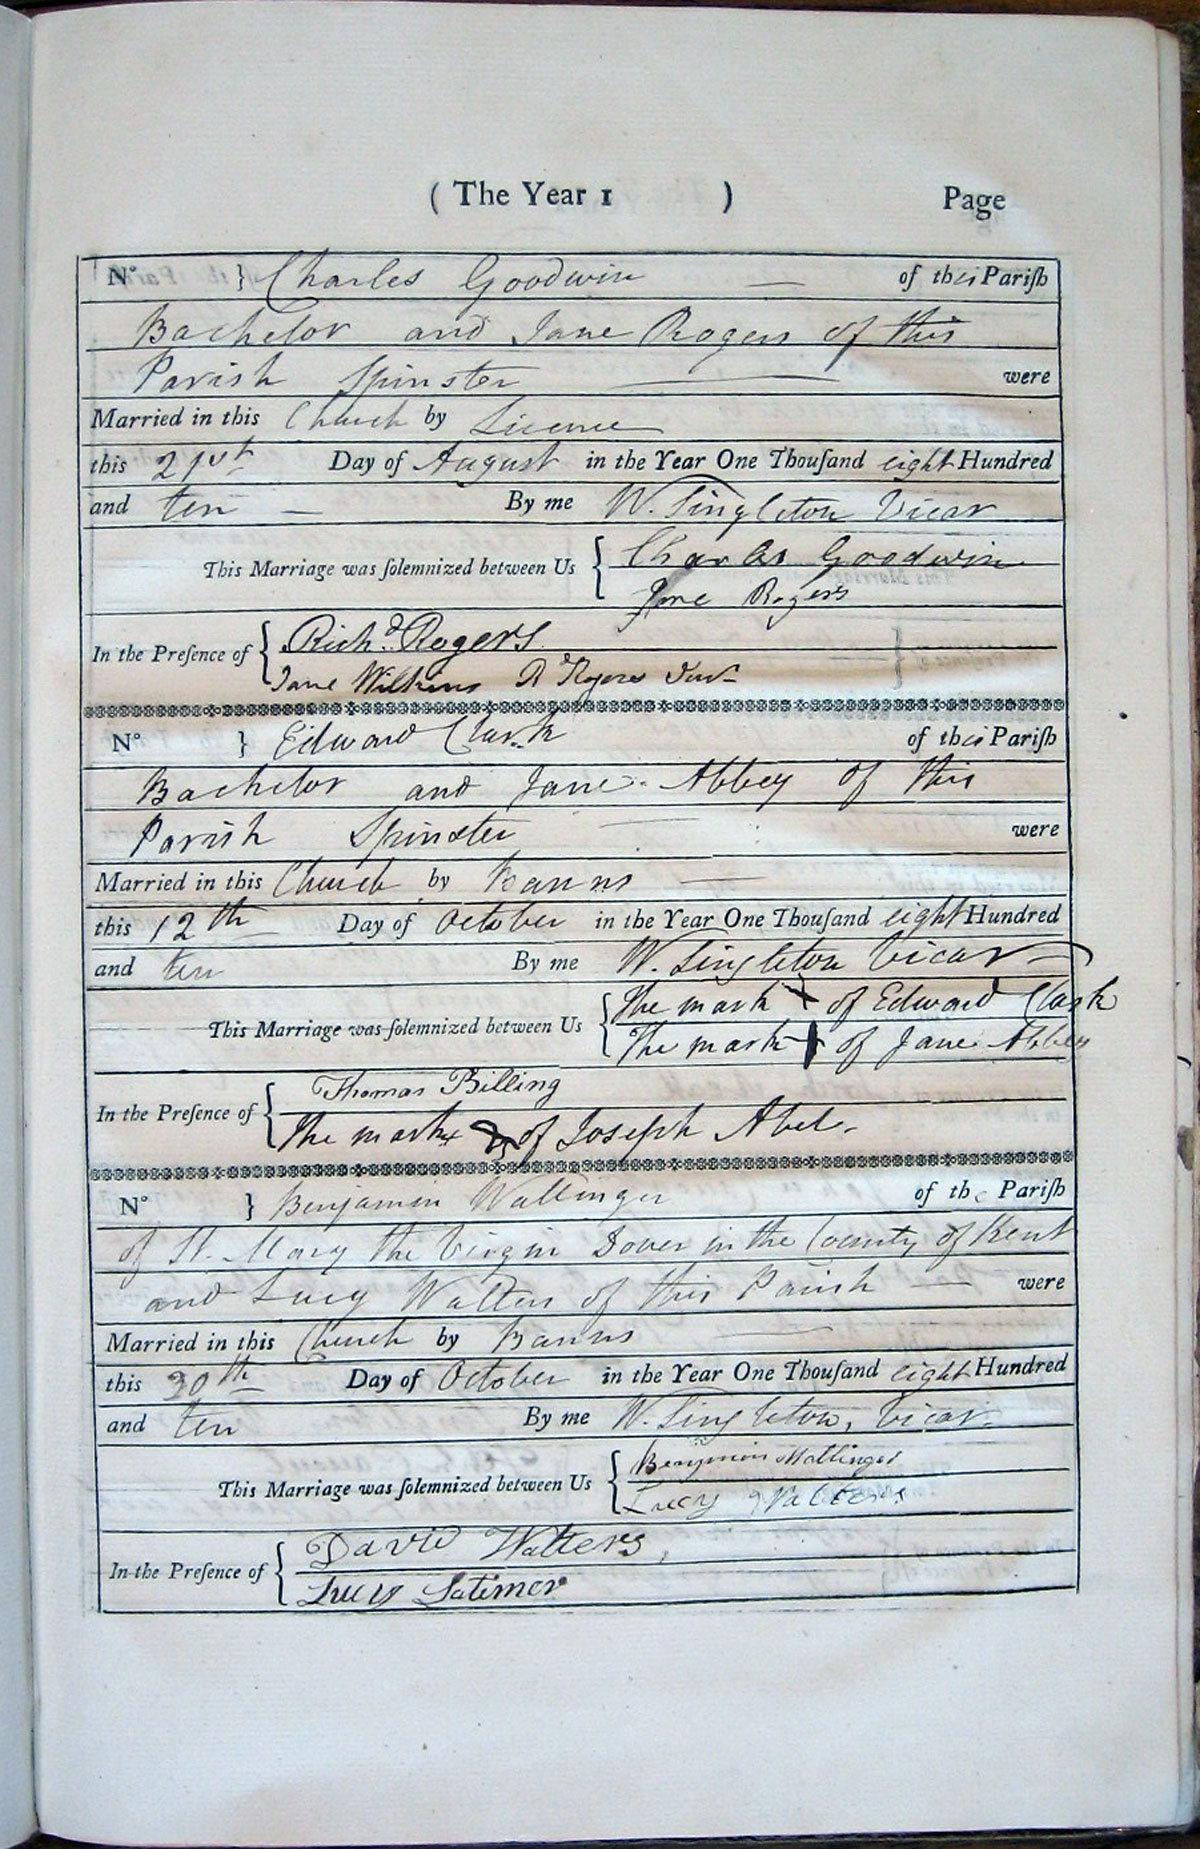 ( The Year 1 ) Page
No } Charles Goodwin — of this Pariſh
Bachelor and Jane Rogers of this
Parish Spinster — were
Married in this Church by Licence
this 21st Day of August in the Year One Thouſand eight Hundred
and ten — By me W. Singleton Vicar
This Marriage was ſolemnized between Us { Charles Goodwin
Jane Rogers
In the Preſence of { Richd. Rogers
Jane Wilkins R Rogers Junr
No } Edward Clark of this Pariſh
Bachelor and Jane Abbey of this
Parish Spinster — were
Married in this Church by Banns —
this 12th Day of October in the Year One Thouſand eight Hundred
and ten By me W. Singleton Vicar
This Marriage was ſolemnized between Us { The mark X of Edward Clark
The mark + of Jane Abbey
In the Preſence of { Thomas Billing
The mark of Joseph Abel.
No } Benjamin Wallinger of the Pariſh
of St. Mary the Virgin Dover in the County of Kent
and Lucy Walters of this Parish — were
Married in this Church by Banns —
this 30th Day of October in the Year One Thouſand eight Hundred
and ten By me W. Singleton, Vicar
This Marriage was ſolemnized between Us { Benjamin Wallinger
Lucy Walters
In the Preſence of { David Walters,
Lucy Latimer